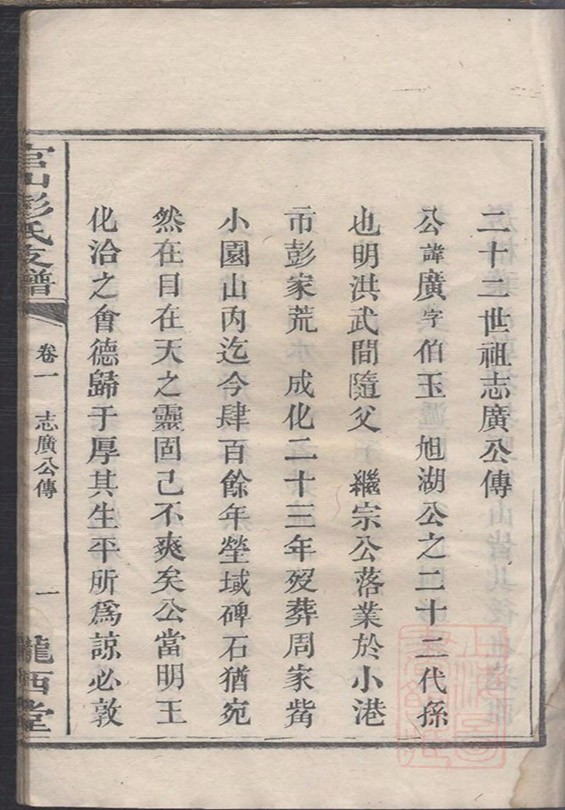 二十二世祖志廣公傳
公諱廣字伯玉旭湖公之二十二代孫
也明洪武間隨父 繼宗公落業於小港
市彭家荒 成化二十三年歿葬周家觜
小園山內迄今肆百餘年塋域碑石猶宛
然在目在天之靈固已不爽矣公當明王
化洽之會德歸于厚其生平所爲諒必敦
官山彭氏支譜
卷一 志廣公傳
一
隴西堂